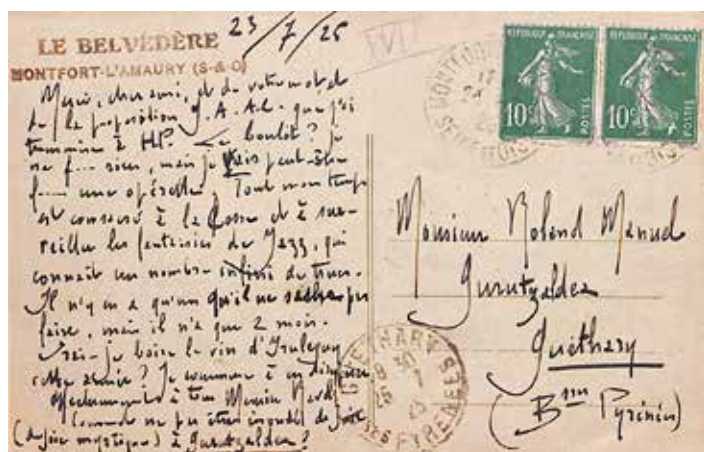 LE BELVÉDÈRE
MONTFORT-L'AMAURY (S-&-O)
23/7/25
Merci, cher ami, et de votre mot et
de la proposition J.A.Al. que j'ai
transmise à HP. Le boulot? je
ne f... rien, mais je vais peut-être
f... une opérette. Tout mon temps
est consacré à la Cosse et à sur-
veiller les fantaisies de Jazz, qui
connaît un nombre infini de trucs.
Il n'y en a qu'un qu'il ne sache pas
faire, mais il n'a que 2 mois.
Irai-je boire le vin d'Irulegui
cette année? Je commence à en
Affectueusement à tous Maurice Ravel
(comment ne pas être inondé de
(de joie mystique) à Gurutzaldea?
RÉPUBLIQUE FRANÇAISE
10c
POSTES
RÉPUBLIQUE FRANÇAISE
10c
POSTES
MONTFORT
Monsieur Roland Manuel
Gurutzaldea
Guéthary
(Bses Pyrénées)
GUETHARY
30
7
25
PYRENEES